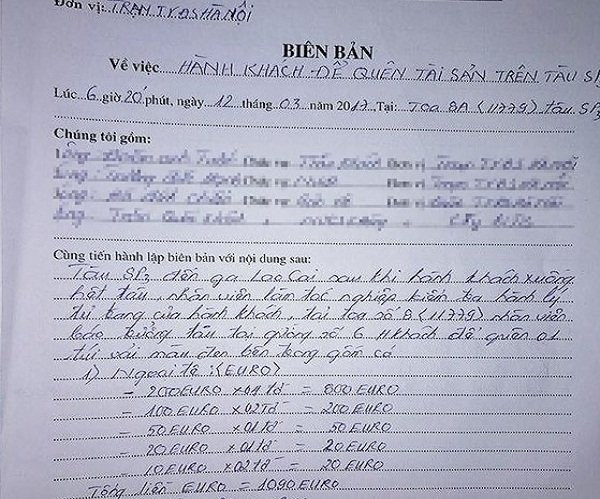 Đơn vị: TRẠM TVĐS HÀ NỘI
BIÊN BẢN
Về việc HÀNH KHÁCH ĐỂ QUÊN TÀI SẢN TRÊN TÀU SP3
Lúc 6 giờ 20 phút, ngày 12 tháng 03 năm 2017 Tại: Toa 8A (11779) tàu SP3
Chúng tôi gồm:
Cùng tiến hành lập biên bản với nội dung sau:
Tàu SP3 đến ga Lao Cai sau khi hành khách xuống
hết tàu, nhân viên làm tác nghiệp kiểm tra hành lý
tư trang của hành khách, tại toa số 8 (11779) nhân viên
báo trưởng tàu tại giường số 6 H khách để quên 01
túi vải màu đen bên trong gồm có
1) Ngoại tệ: (EURO)
- 200 EURO x 04 tờ = 800 EURO
- 100 EURO x 02 tờ = 200 EURO
- 50 EURO x 01 tờ = 50 EURO
- 20 EURO x 01 tờ = 20 EURO
- 10 EURO x 02 tờ = 20 EURO
Tổng tiền EURO = 1090 EURO